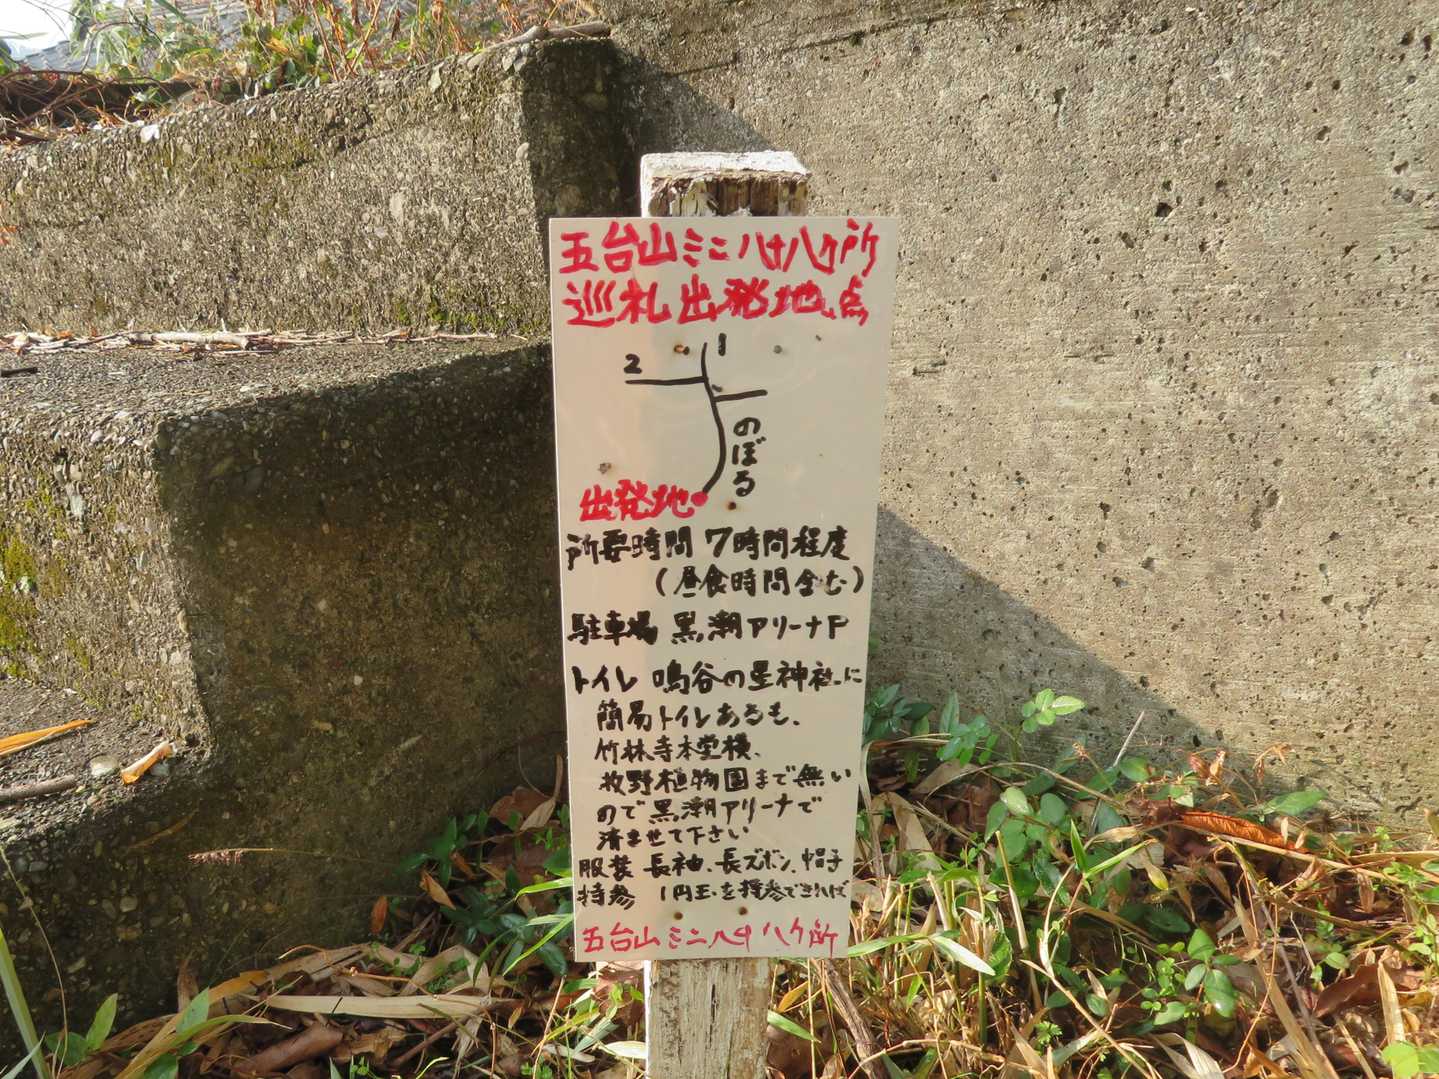 五台山ミニ八十八ヶ所
巡礼出発地点
1
2
のぼる
出発地
所要時間 7時間程度
(昼食時間含む)
駐車場 黒潮アリーナP
トイレ 鳴谷の星神社に
簡易トイレあるも、
竹林寺本堂横、
牧野植物園まで無い
ので黒潮アリーナで
済ませて下さい
服装 長袖、長ズボン、帽子
持参 1円玉を持参できれば
五台山ミニ八十八ヶ所